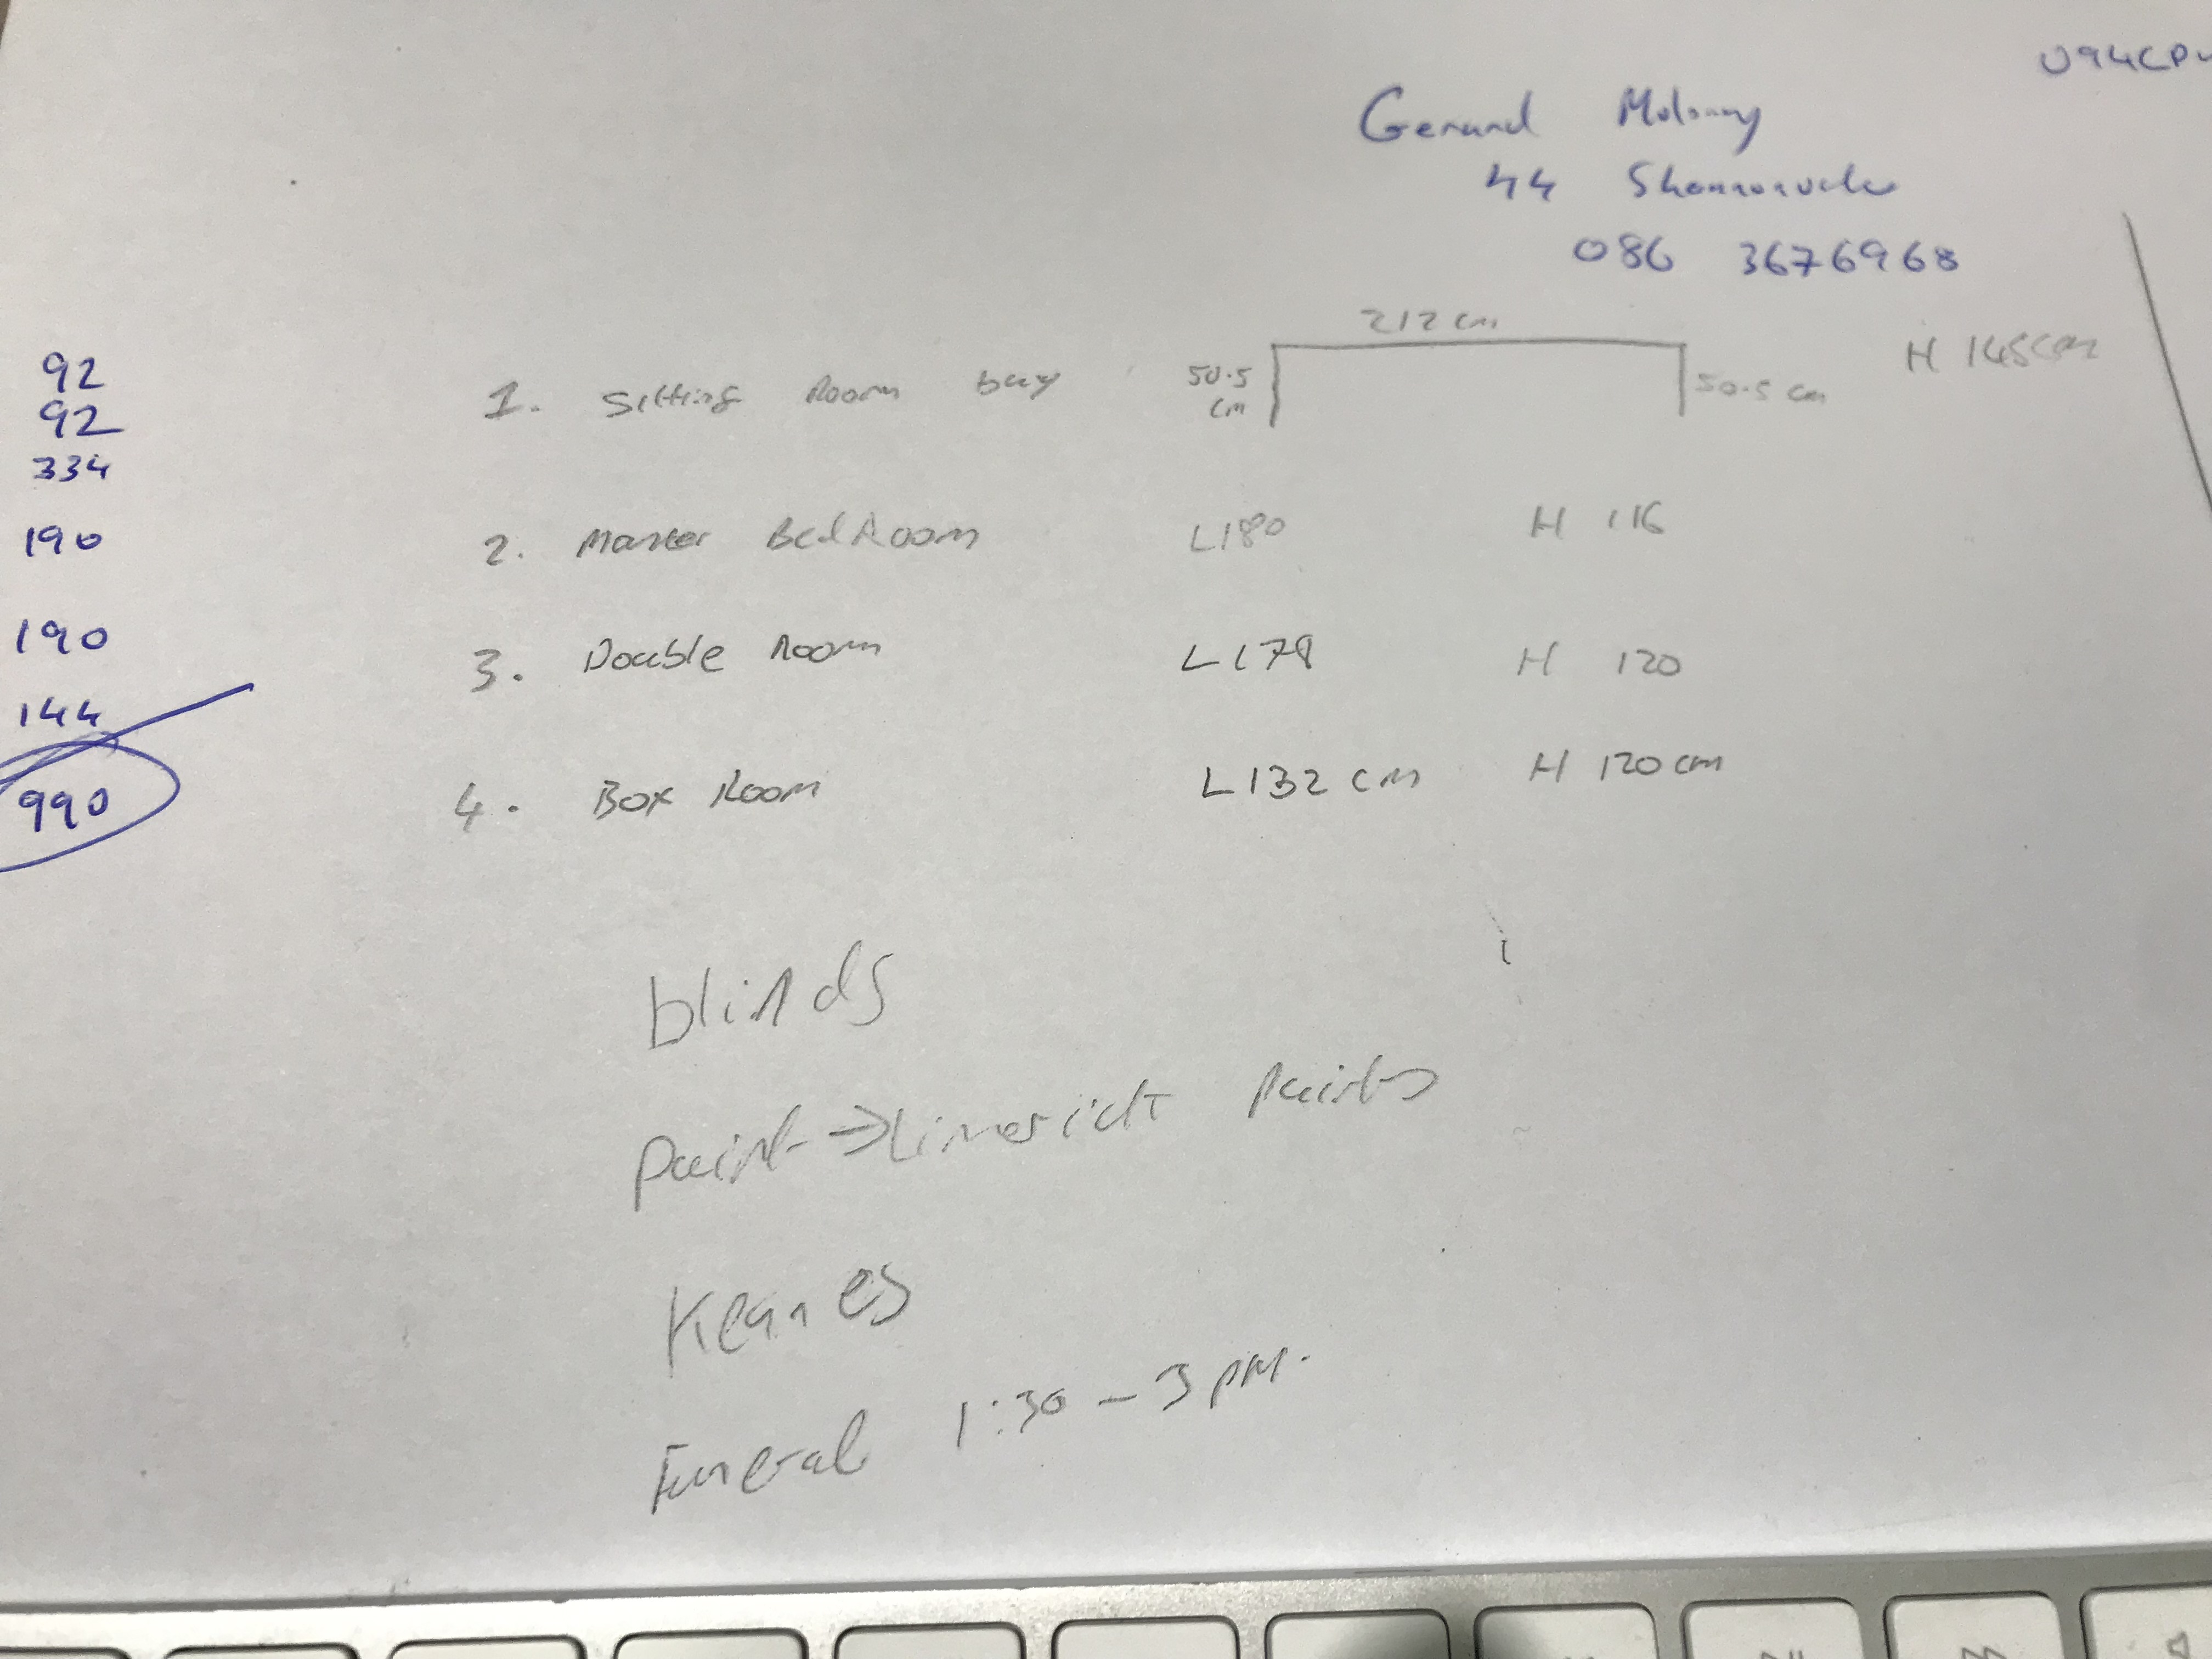 Gerard Molony
44 Shannonvale
086 3676968
92
92
334
190
190
144
990
212 cm
1. Sitting Room bay 50.5 cm 50.5 cm H 145cm
2. Master Bed Room L180 H 116
3. Double Room L179 H 120
4. Box Room L132 cm H 120 cm
blinds
paint → Limerick paints
Keanes
Funeral 1:30 - 3 pm.